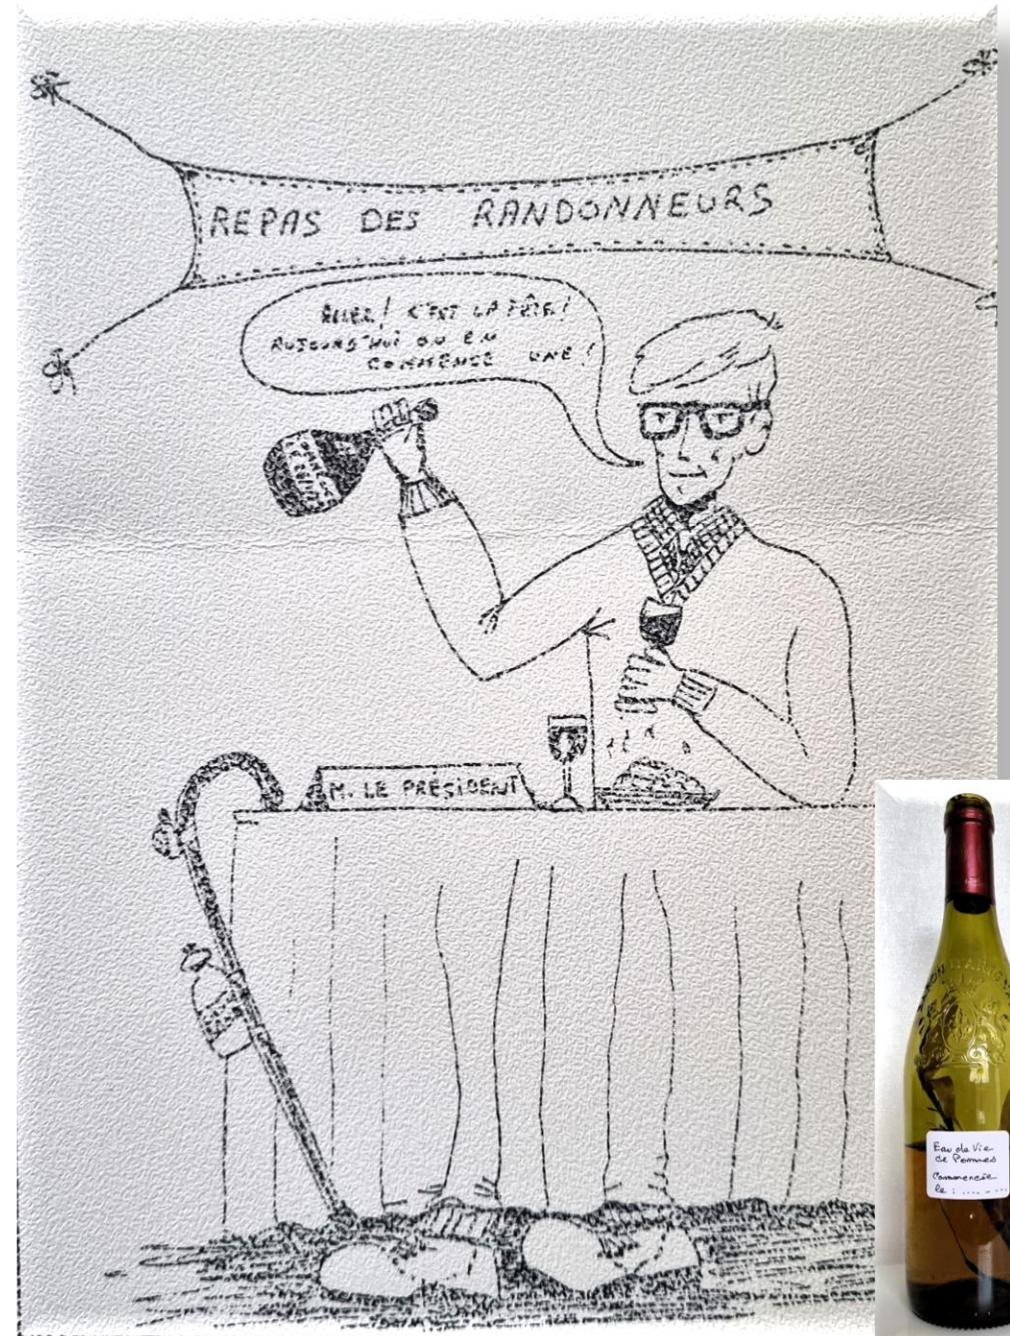 REPAS DES RANDONNEURS
ALLEZ! C'EST LA FÊTE!
AUJOURD'HUI ON EN
COMMENCE UNE!
M. LE PRÉSIDENT
Eau de Vie
de Pommes
Commencée
le : .... - ...